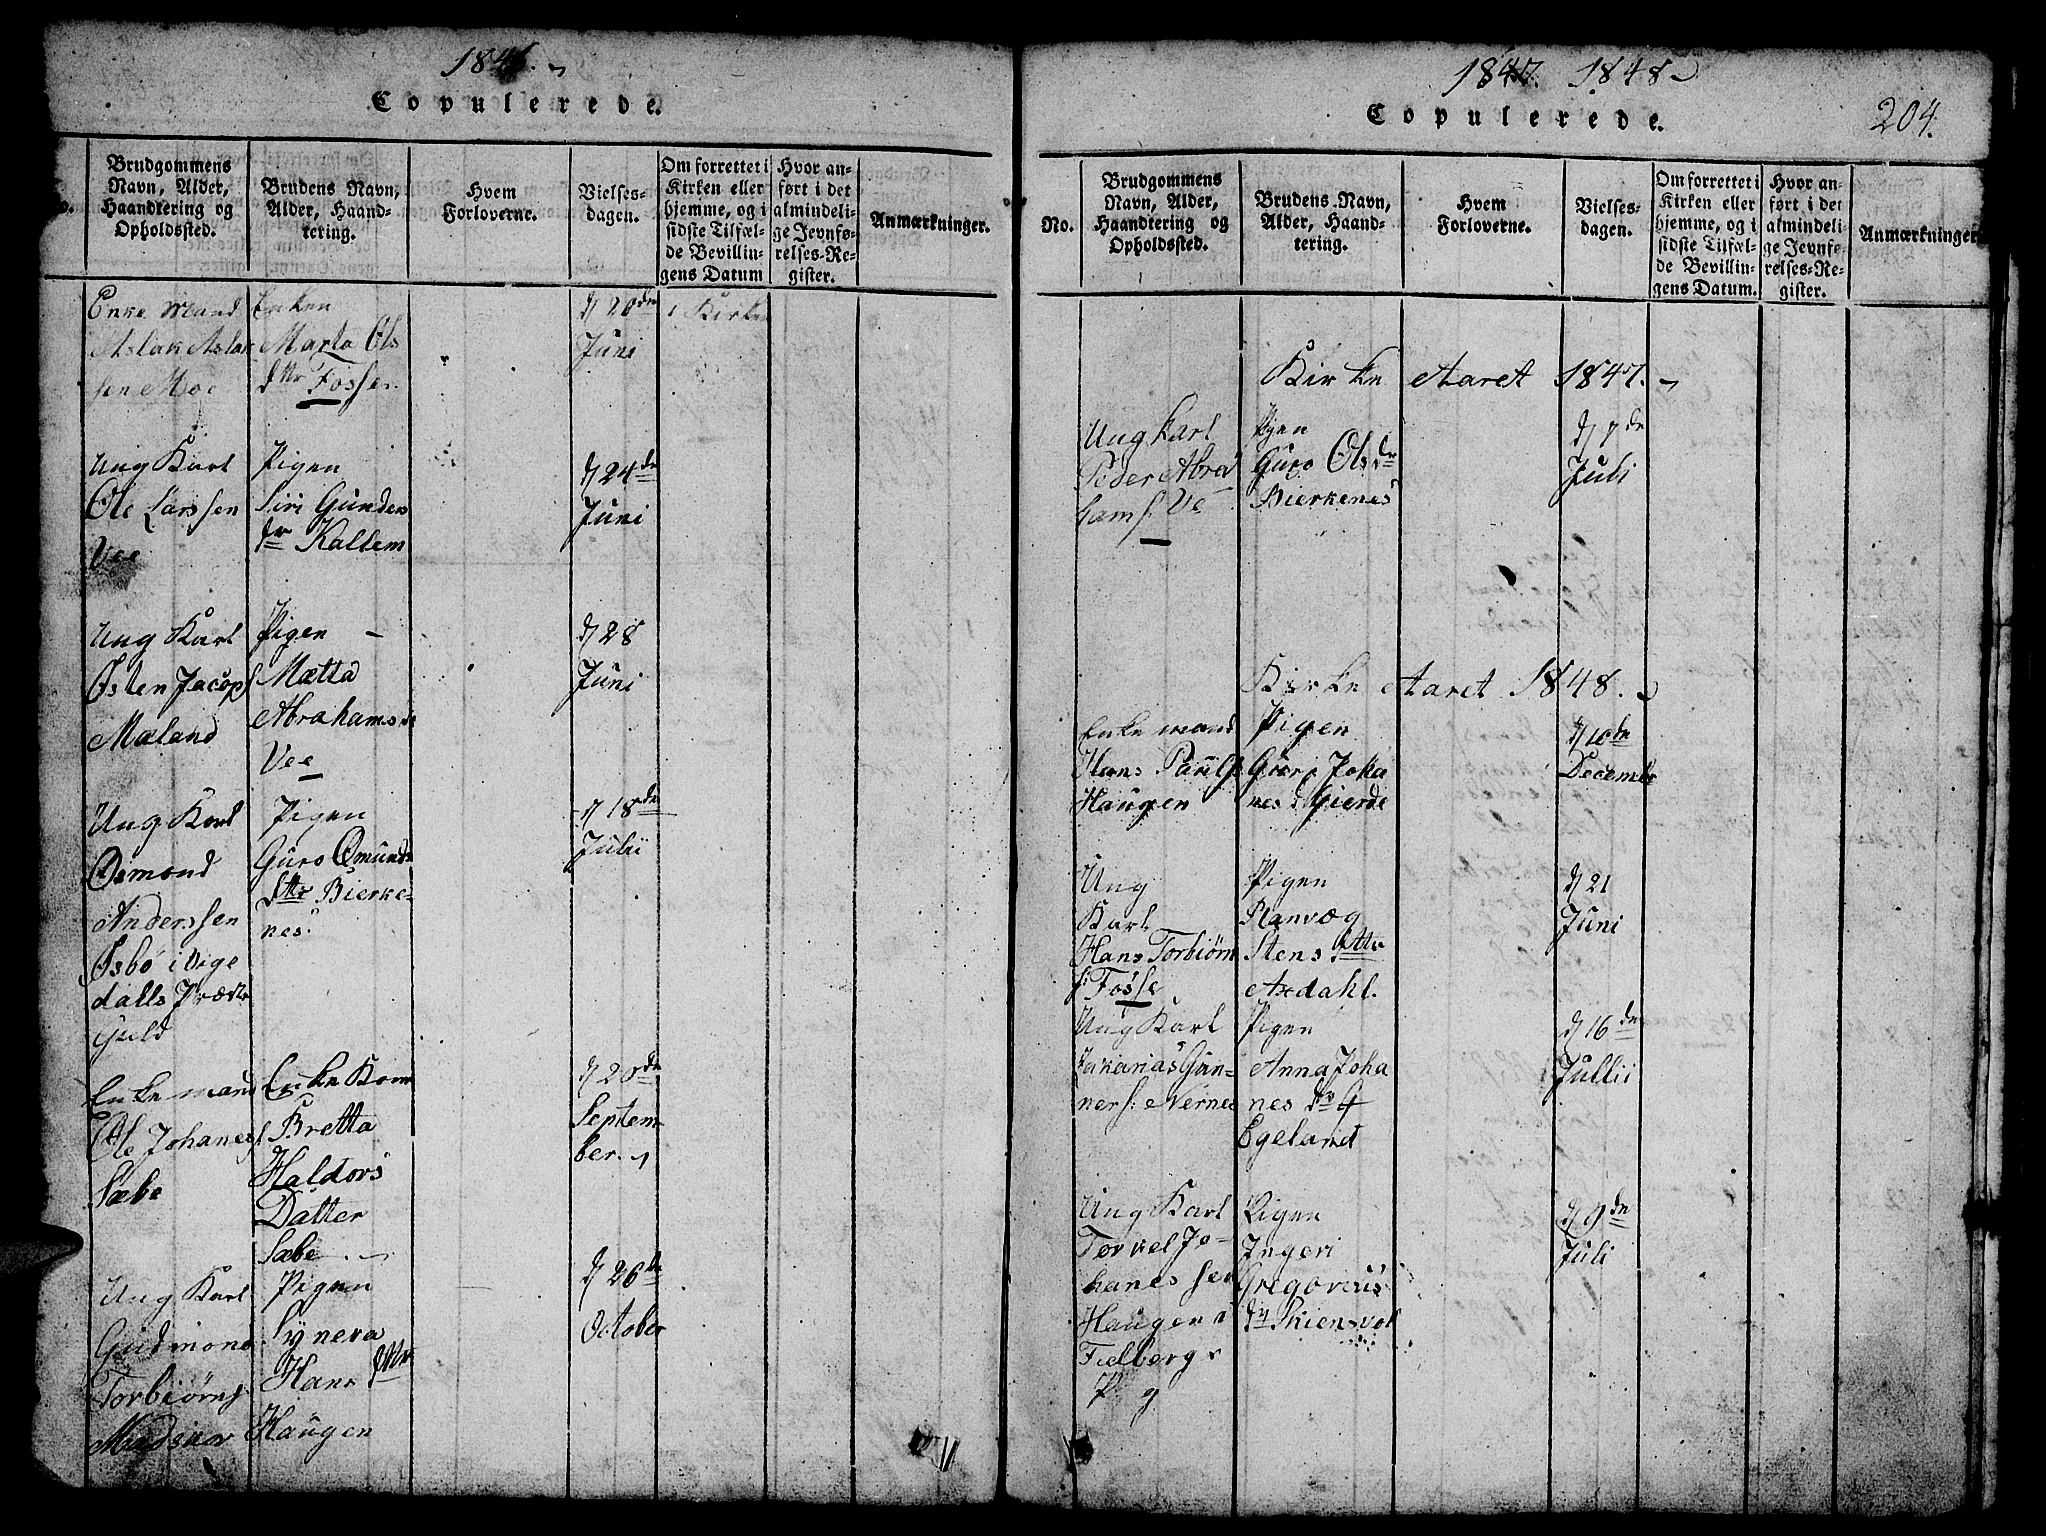 1846.
Copulerede.
No.
Brudgommens
Navn, Alder,
Haandtering og
Opholdssted.
Brudens Navn,
Alder, Haand-
tering.
Hvem
Forloverne.
Vielses-
dagen.
Om forrettet i
Kirken eller
hjemme, og i
sidste Tilfæl-
de Bevillin-
gens Datum
Hvor an-
ført i det
almindeli-
ge Jevnfø-
relses-Re-
gister.
Anmærkninger.
Enke Mand
Aslak Aslak
sen Moe
Enken
Marta Ols
dttr Fosse.
d 20de
Juni
i Kirken
Ung Karl
Ole Larssen
Vee
Pigen
Siri Gunders
dr Kallem
d 24de
Juni
Ung Karl
Østen Jacops
Mæland
Pigen
Mætta
Abrahamsdr
Vee
d 28
Juni
Ung Karl
Osmond
Anderssen
Øsbø i Vige
dalls Præste
Gield
Pigen
Guro Omunds
dttr Bierke-
nes.
d 18de
Julii
Enke mand
Ole Johanes
Sæbe
Enke Kone
Bretta
Haldors
Datter
Sæbe
d 20de
Septem
ber.
Ung Karl
Gudmond
Torbiørns
Mindsnar
Pigen
Synera
Hans dttr
Haugen
d 26de
October
1847. 1848
204.
Copulerede.
No.
Brudgommens
Navn, Alder,
Haandtering og
Opholdssted.
Brudens Navn,
Alder, Haand-
tering.
Hvem
Forloverne.
Vielses-
dagen.
Om forrettet i
Kirken eller
hjemme, og i
sidste Tilfæl-
de Bevillin-
gens Datum.
Hvor an-
ført i det
almindeli-
ge Jevnfø-
relses-Re-
gister.
Anmærkninger
Kirke Aaret 1847.
Ung Karl
Peder Abra
hams. Ve
Pigen
Guro Olsdr
Bierkenes
d 7de
Juli
Kirke Aaret 1848.
Enke mand
Hans Pauls
Haugen
Pigen
Guri Joha
nes d Gierde
d 10de
December
Ung
Karl
Hans Torbiørn
s: Fosse
Pigen
Ranvæg
Stens dttr
Axdahl.
d 21
Juni
Ung Karl
Sakarias Gun-
ners: Nernes
Pigen
Anna Joha
nes dr
Egeland
d 16de
Jullii
Ung Karl
Torkel Jo-
hanes sen
Haugen i
Fielbergs
P g
Pigen
Ingeri
Gregorius
dr Skiensvol
d 9de
Juli